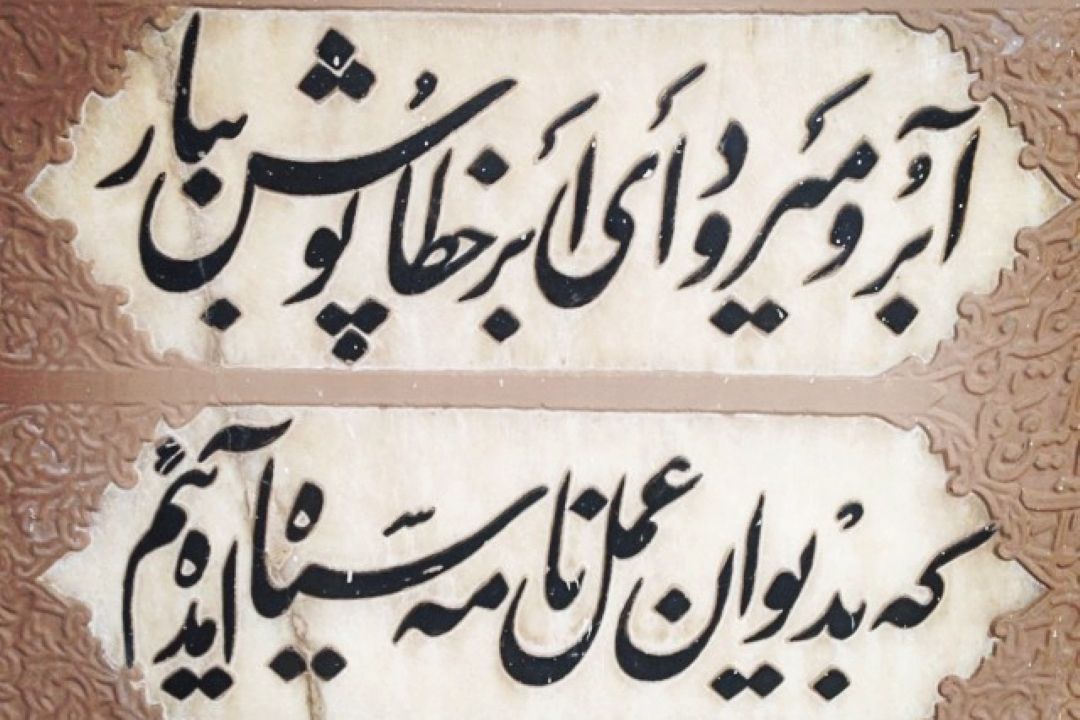 آبرو میرود أی أبر خطاپوش ببار
که بدیوان عمل نامه سیاه آمده‌ایم